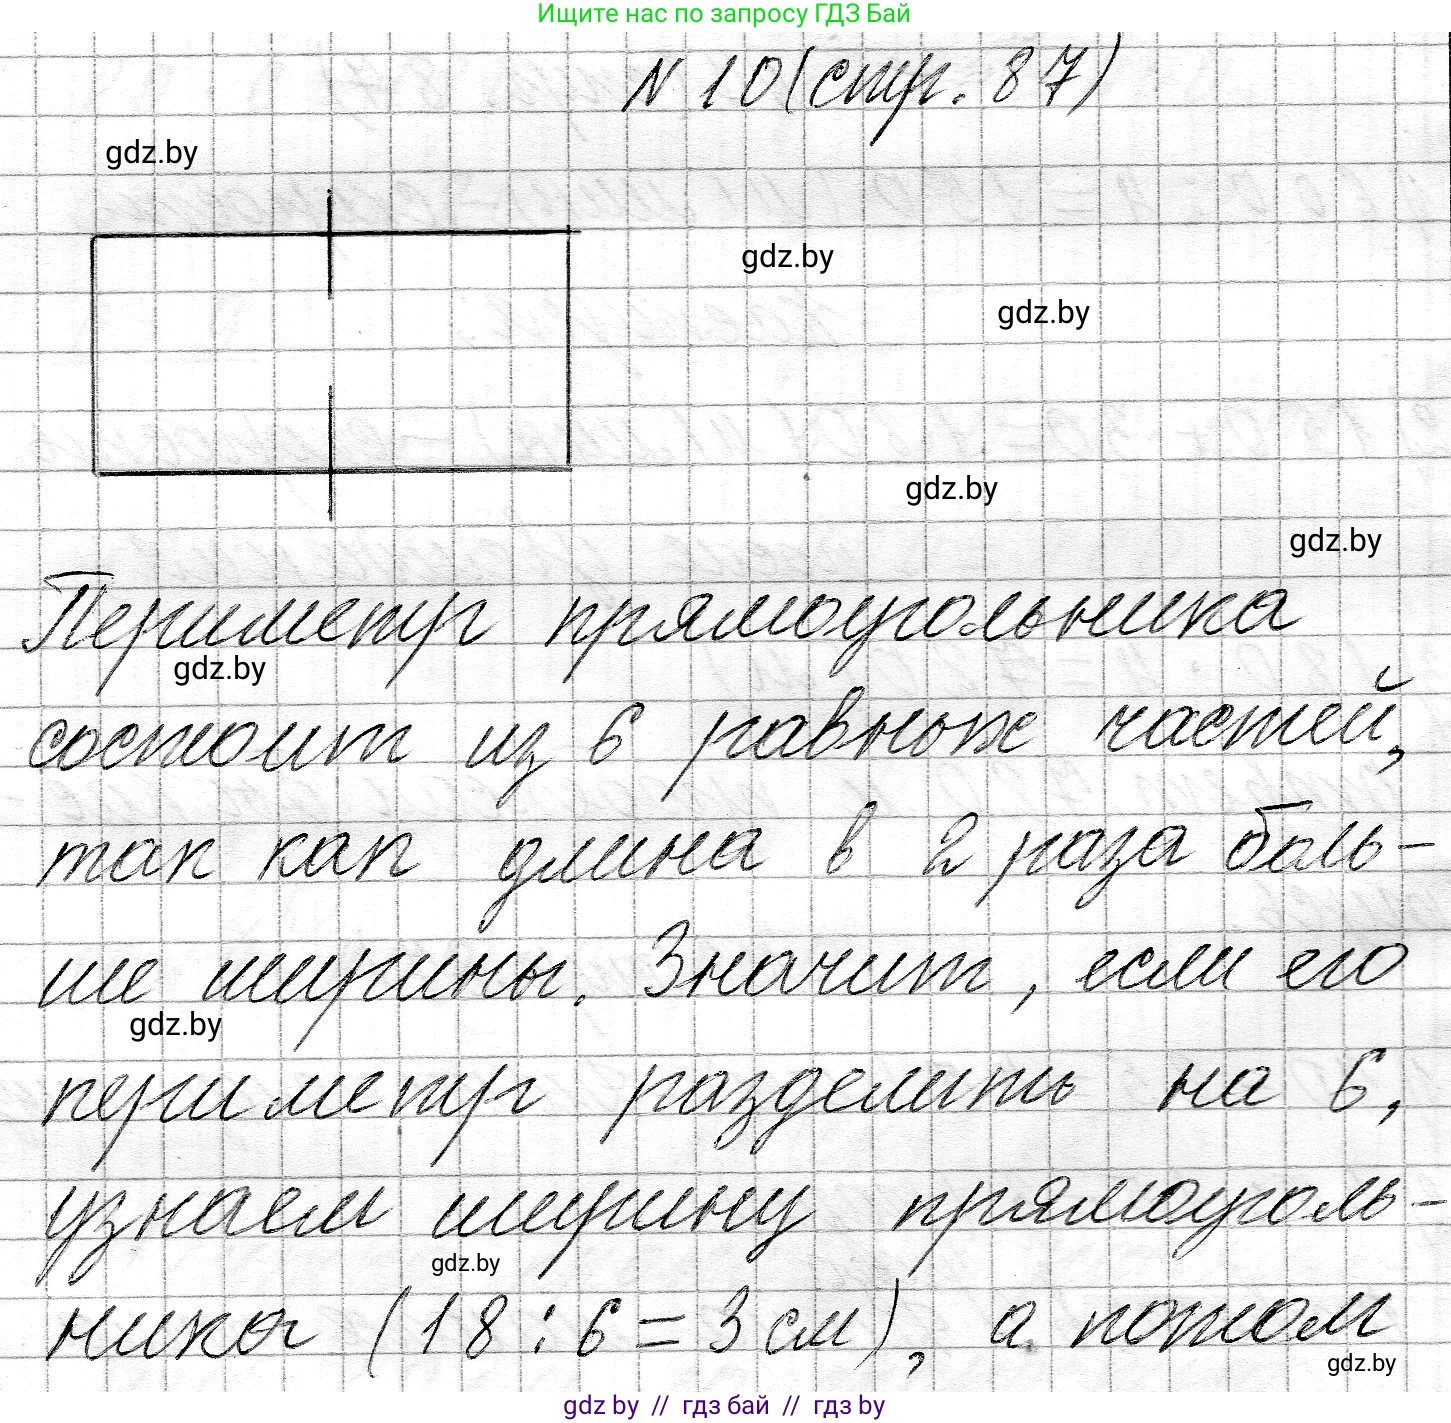 Ищите нас по запросу ГДЗ Бай
N 10 (стр. 87)
gdz.by
gdz.by
gdz.by
gdz.by
gdz.by
Периметр прямоугольника
gdz.by
состоит из 6 равных частей,
так как длина в 2 раза боль-
ше ширины. Значит, если его
gdz.by
периметр разделить на 6,
узнаем ширину прямоуголь-
gdz.by
ника (18 : 6 = 3 см), а потом
gdz.by
gdz by // гдз бай // гдз by